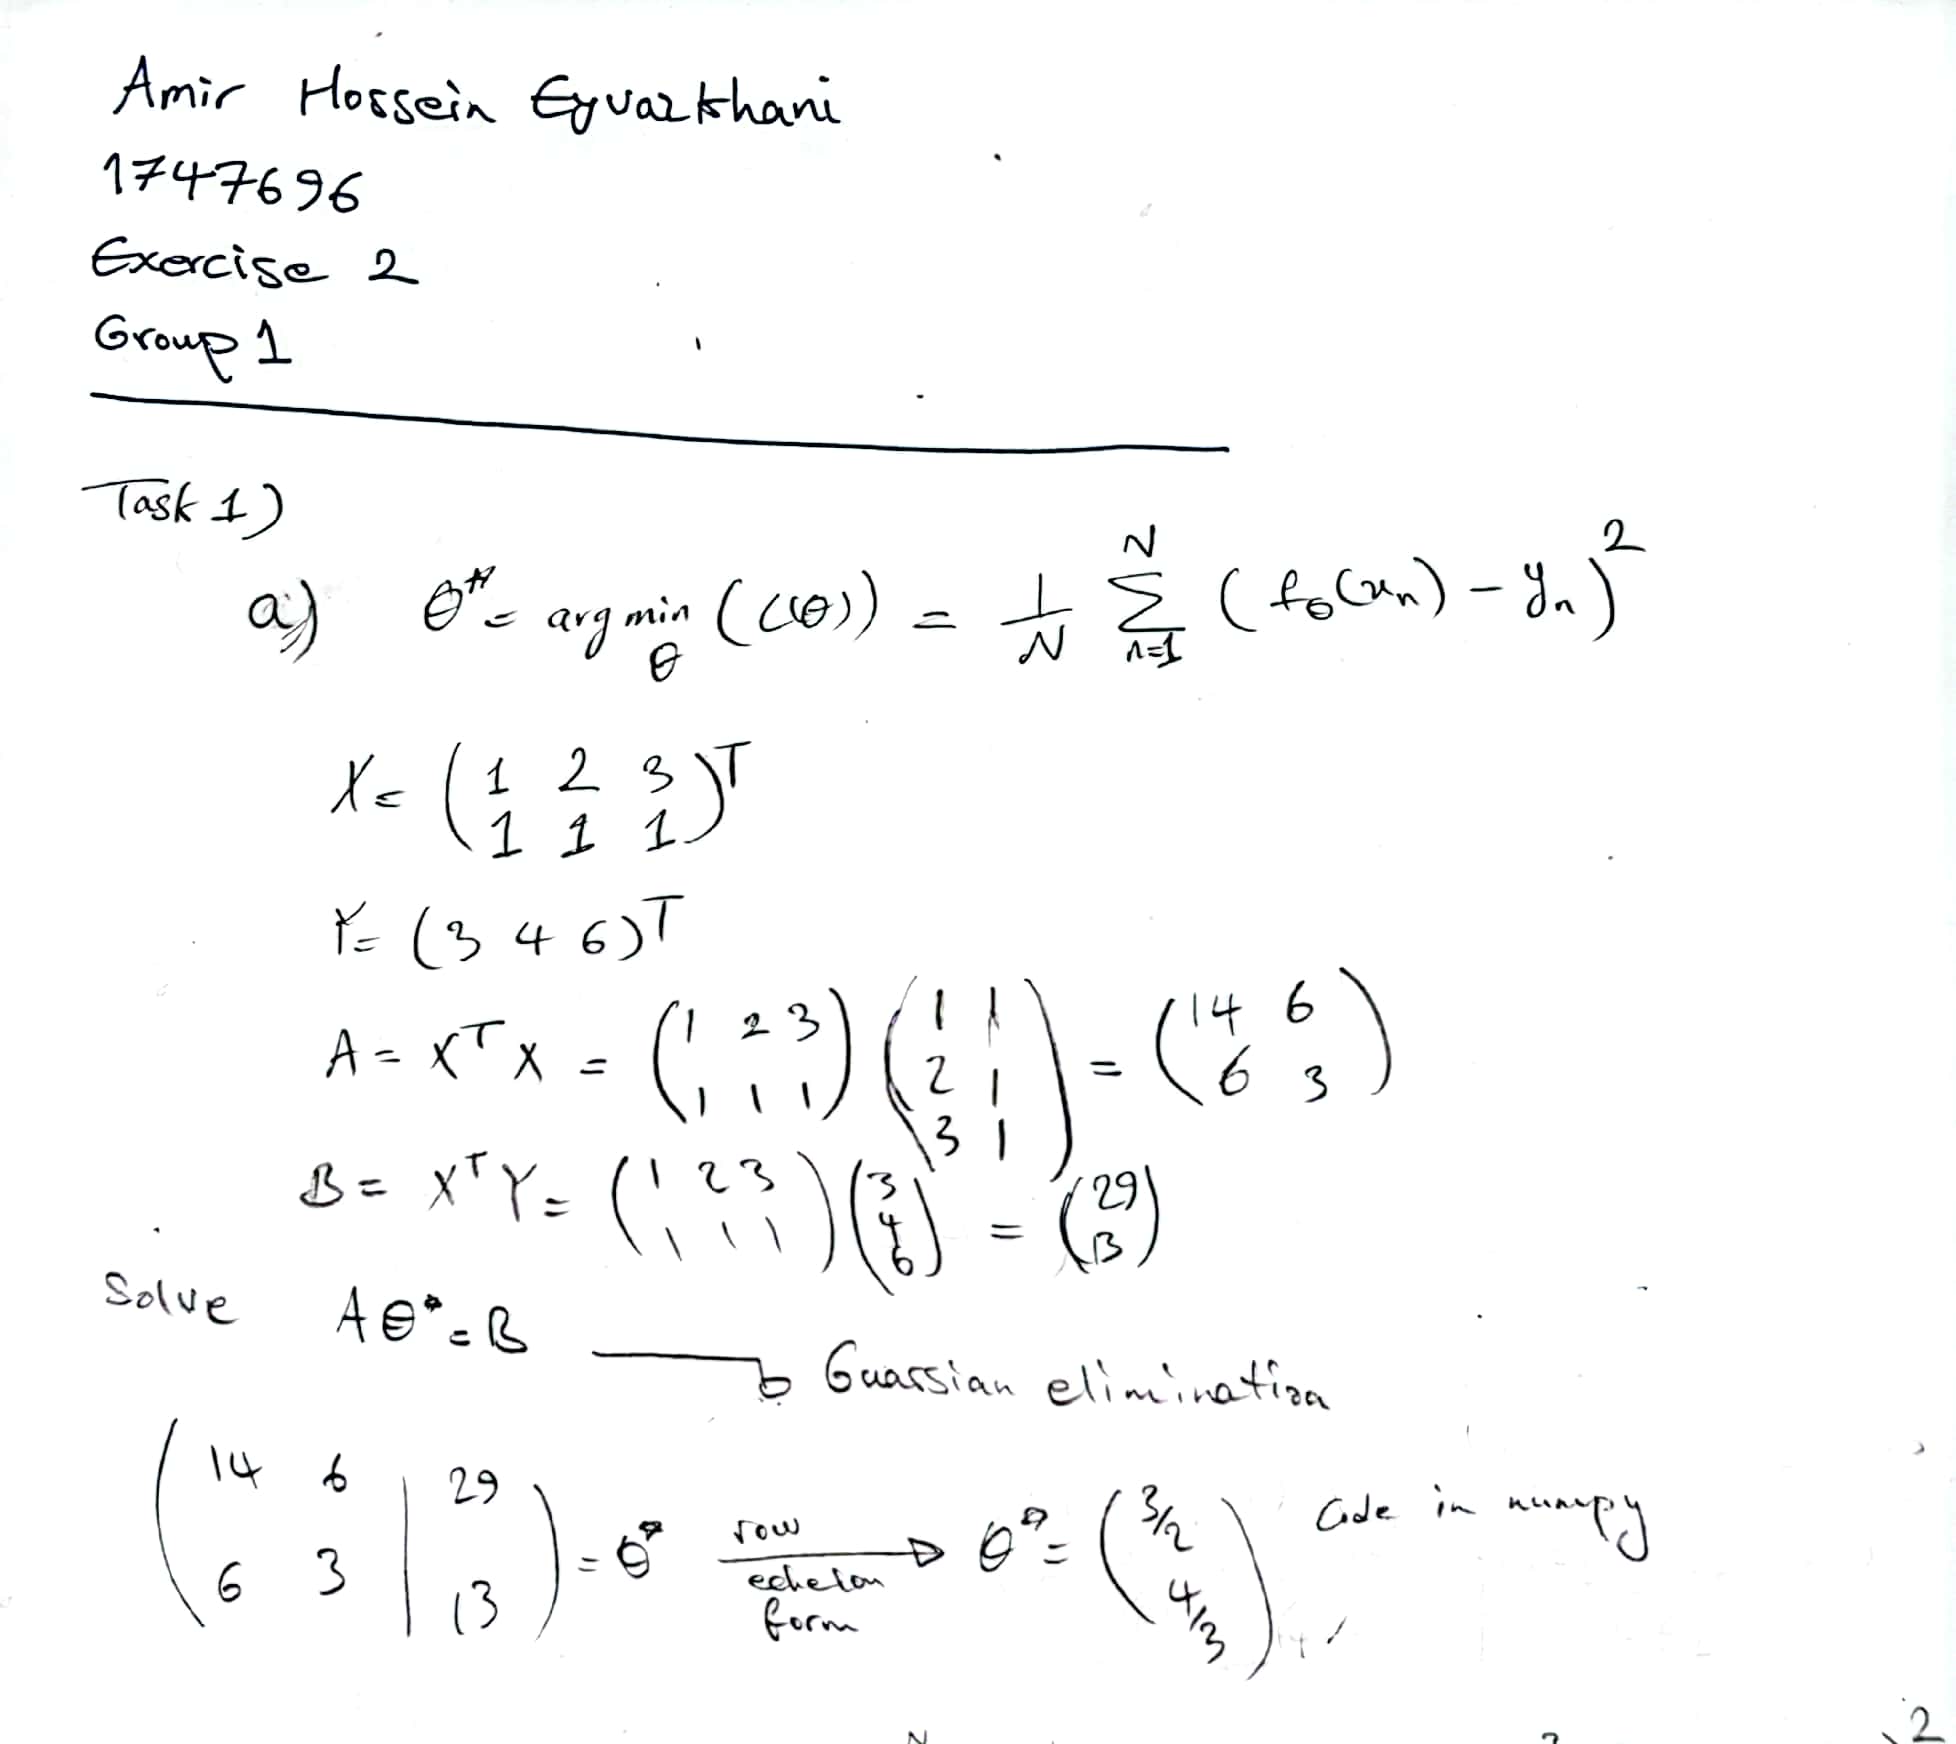 Amir Hossein Eyvazkhani
1747696
Exercise 2
Group 1
Task 1)
a) θ* = arg min_θ (L(θ)) = 1/N Σ_{n=1}^{N} (f_θ(x_n) - y_n)^2
X = (1 2 3; 1 1 1)^T
Y = (3 4 6)^T
A = X^T X = (1 2 3; 1 1 1) (1 1; 2 1; 3 1) = (14 6; 6 3)
B = X^T Y = (1 2 3; 1 1 1) (3; 4; 6) = (29; 13)
Solve Aθ* = B → Guassian elimination
(14 6 | 29; 6 3 | 13) = θ* row echelon form → θ* = (3/2; 4/3) Code in numpy